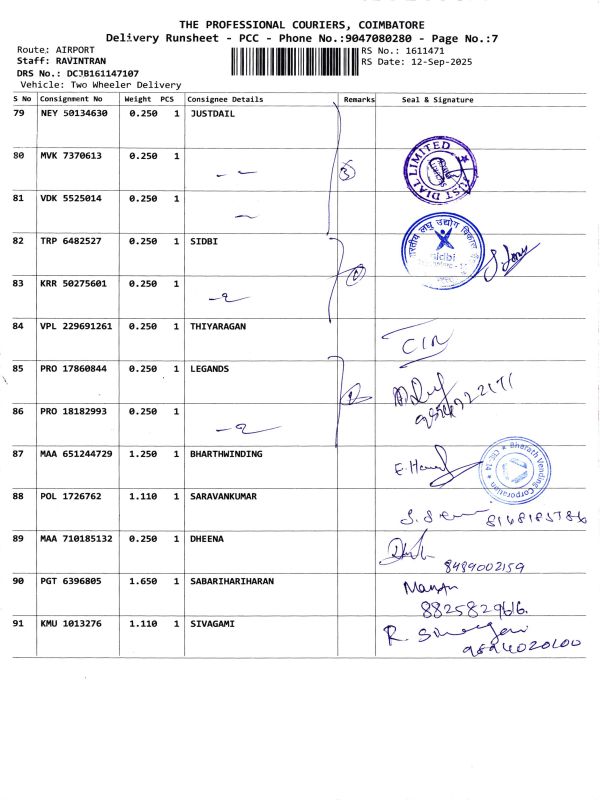 THE PROFESSIONAL COURIERS, COIMBATORE
Delivery Runsheet - PCC - Phone No.:9047080280 - Page No.:7
Route: AIRPORT
RS No.: 1611471
Staff: RAVINTRAN
RS Date: 12-Sep-2025
DRS No.: DCJB161147107
Vehicle: Two Wheeler Delivery
S No Consignment No Weight PCS Consignee Details Remarks Seal & Signature
79 NEY 50134630 0.250 1 JUSTDAIL
80 MVK 7370613 0.250 1
3
JUST DIAL LIMITED
81 VDK 5525014 0.250 1
82 TRP 6482527 0.250 1 SIDBI
भारतीय लघु उद्योग विकास
sidbi
83 KRR 50275601 0.250 1
84 VPL 229691261 0.250 1 THIYARAGAN
85 PRO 17860844 0.250 1 LEGANDS
86 PRO 18182993 0.250 1
87 MAA 651244729 1.250 1 BHARTHWINDING
Bharath Vending Corporation ★ CBE-14 ★
88 POL 1726762 1.110 1 SARAVANKUMAR
89 MAA 710185132 0.250 1 DHEENA
8489002159
90 PGT 6396805 1.650 1 SABARIHARIHARAN
91 KMU 1013276 1.110 1 SIVAGAMI